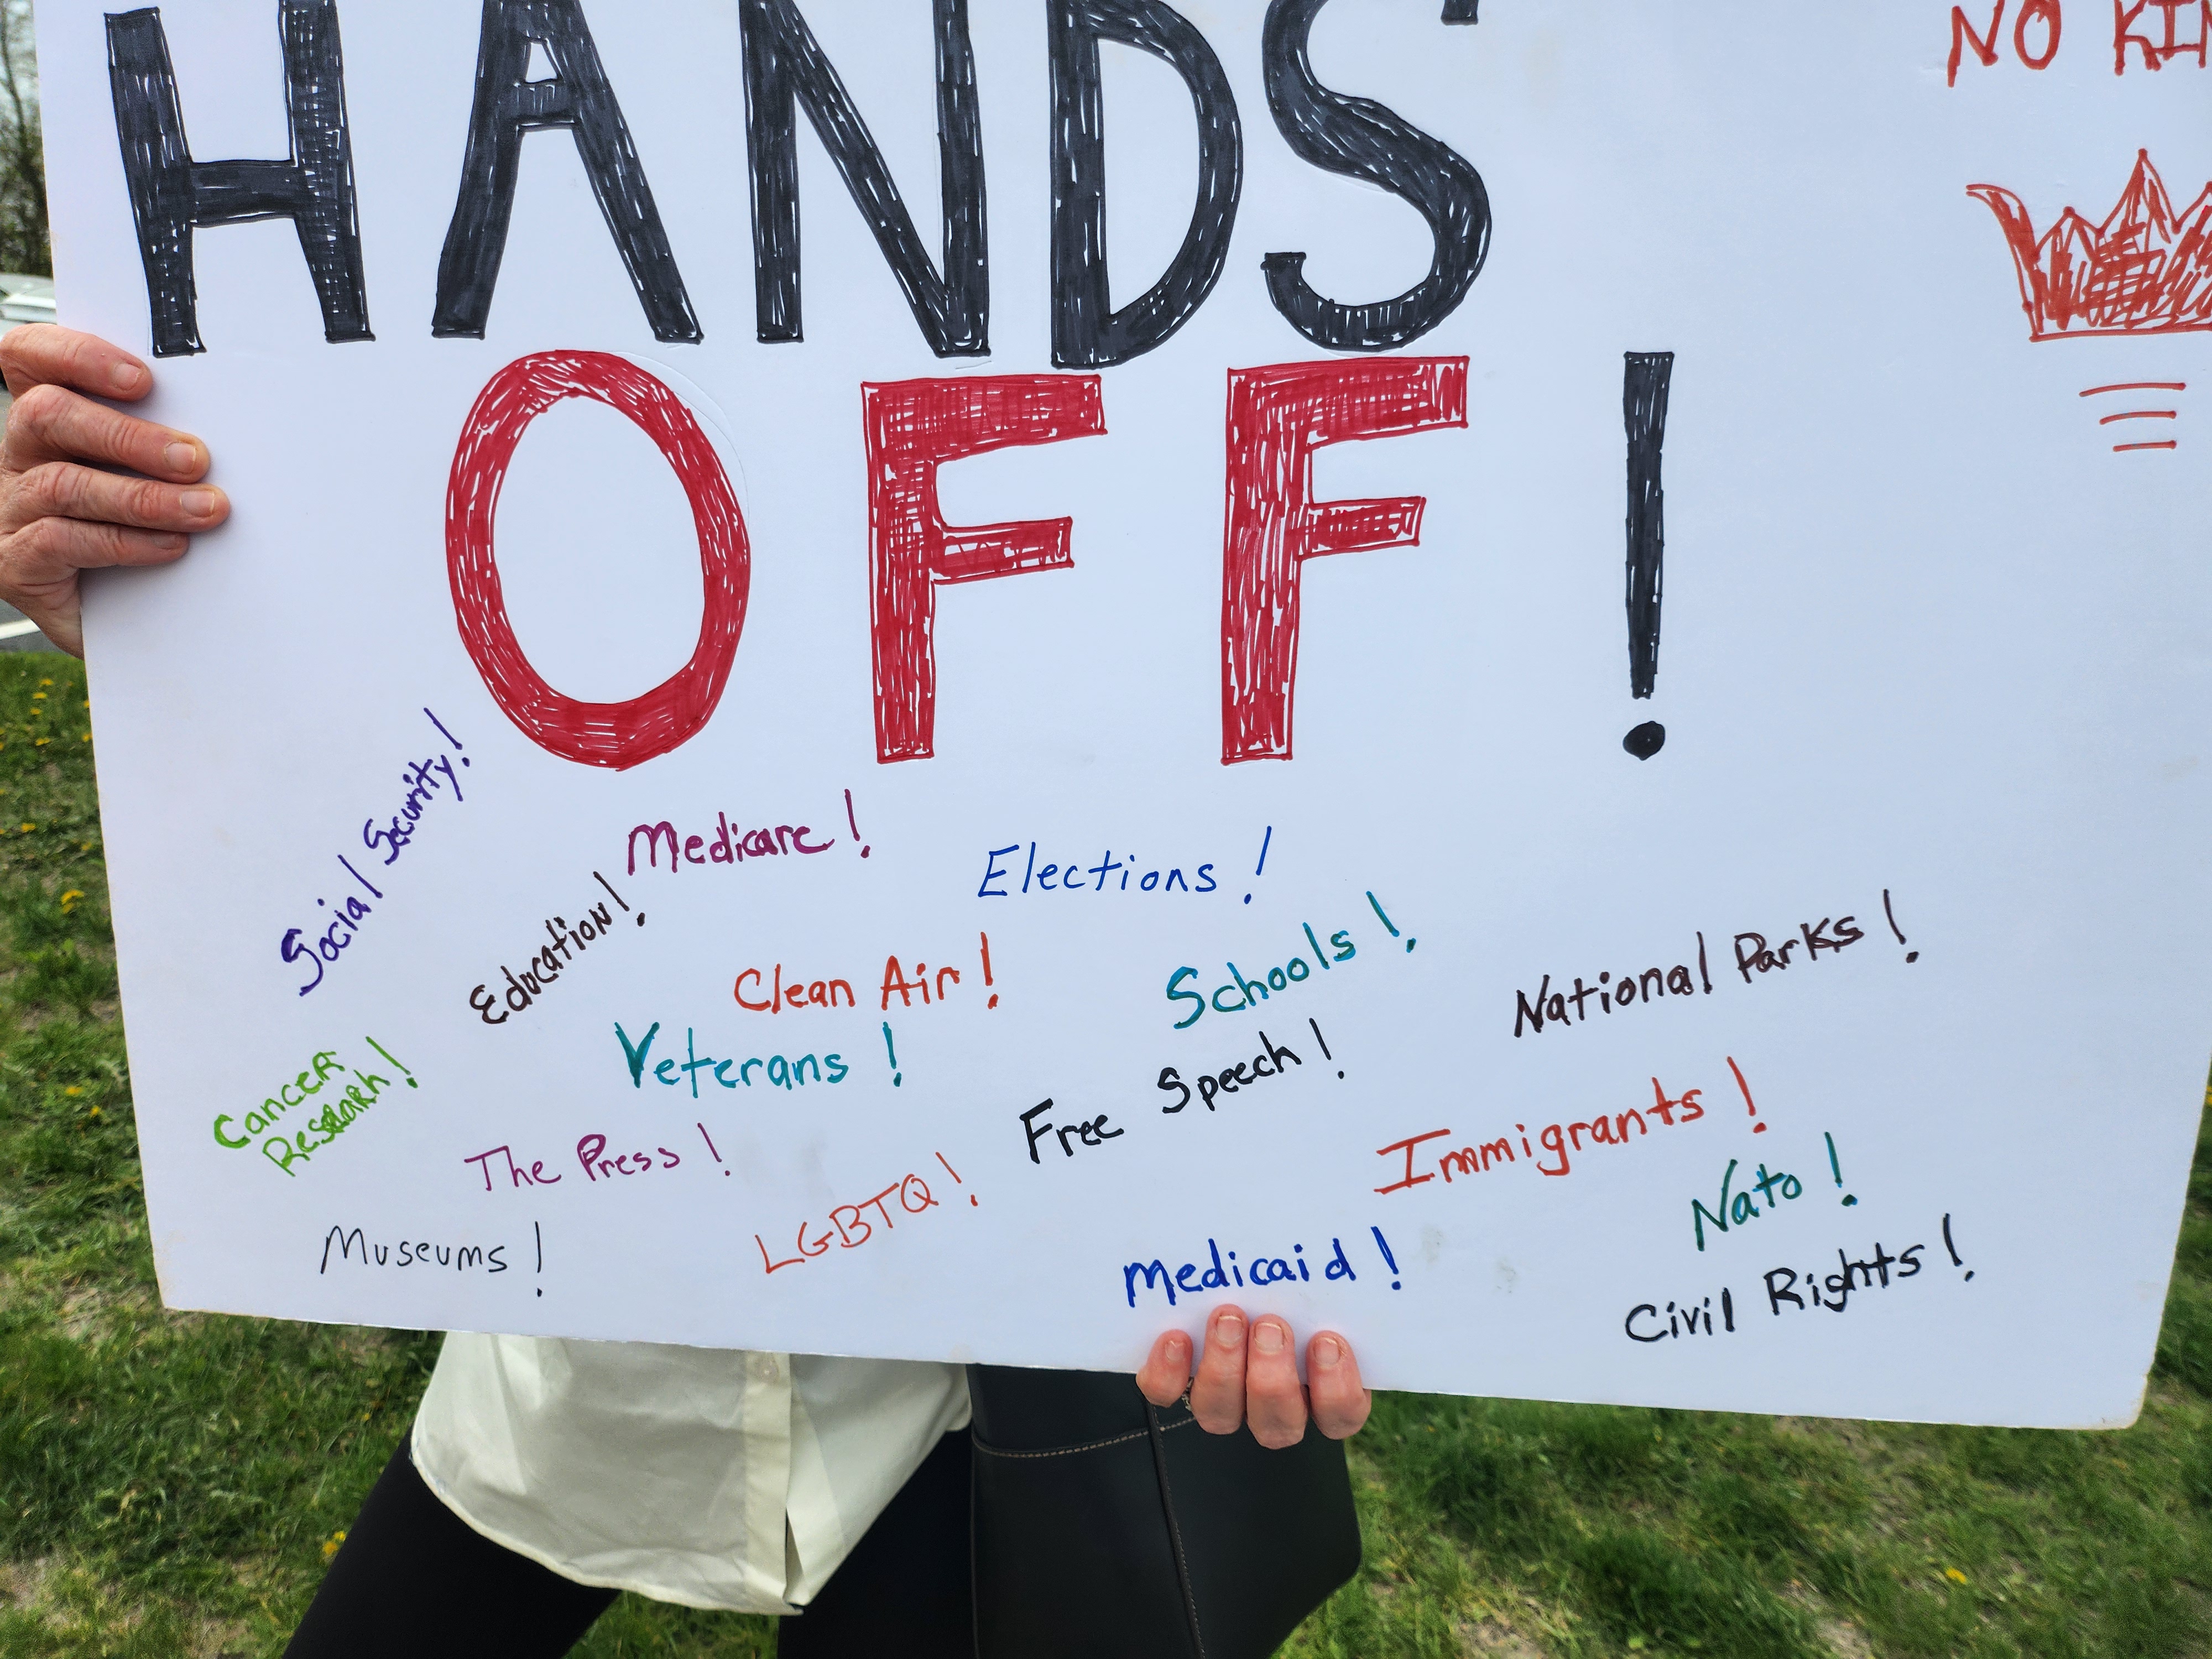 HANDS
NO KIN
OFF!
Social Security!
Medicare!
Elections!
Education!
Clean Air!
Schools!
National Parks!
Veterans!
Free Speech!
Cancer
Research!
The Press!
Immigrants!
LGBTQ!
Nato!
Museums!
Medicaid!
Civil Rights!